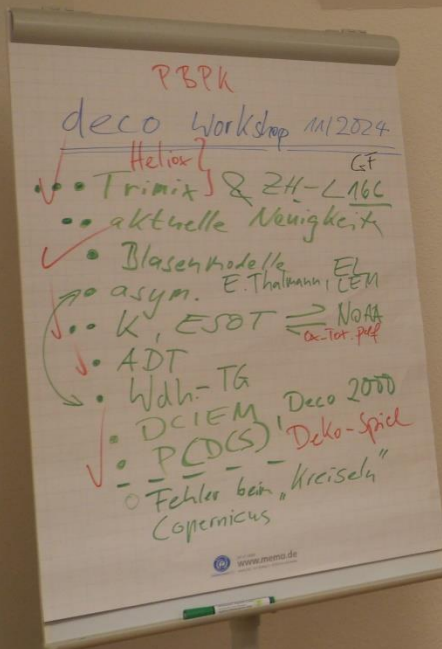 PBPK
deco Workshop 11/2024
Heliox GF
• • • Trimix & ZH-L 16C
• • aktuelle Neuigkeit
• Blasenmodelle
asym. E. Thalmann, EL
LEM
• • K, ESOT ⇌ NOAA
• ADT
• Wdh.-TG
• DCIEM, Deco 2000
• P(DCS) Deko-Spiel
○ Fehler beim „Kreiseln"
Copernicus
www.memo.de